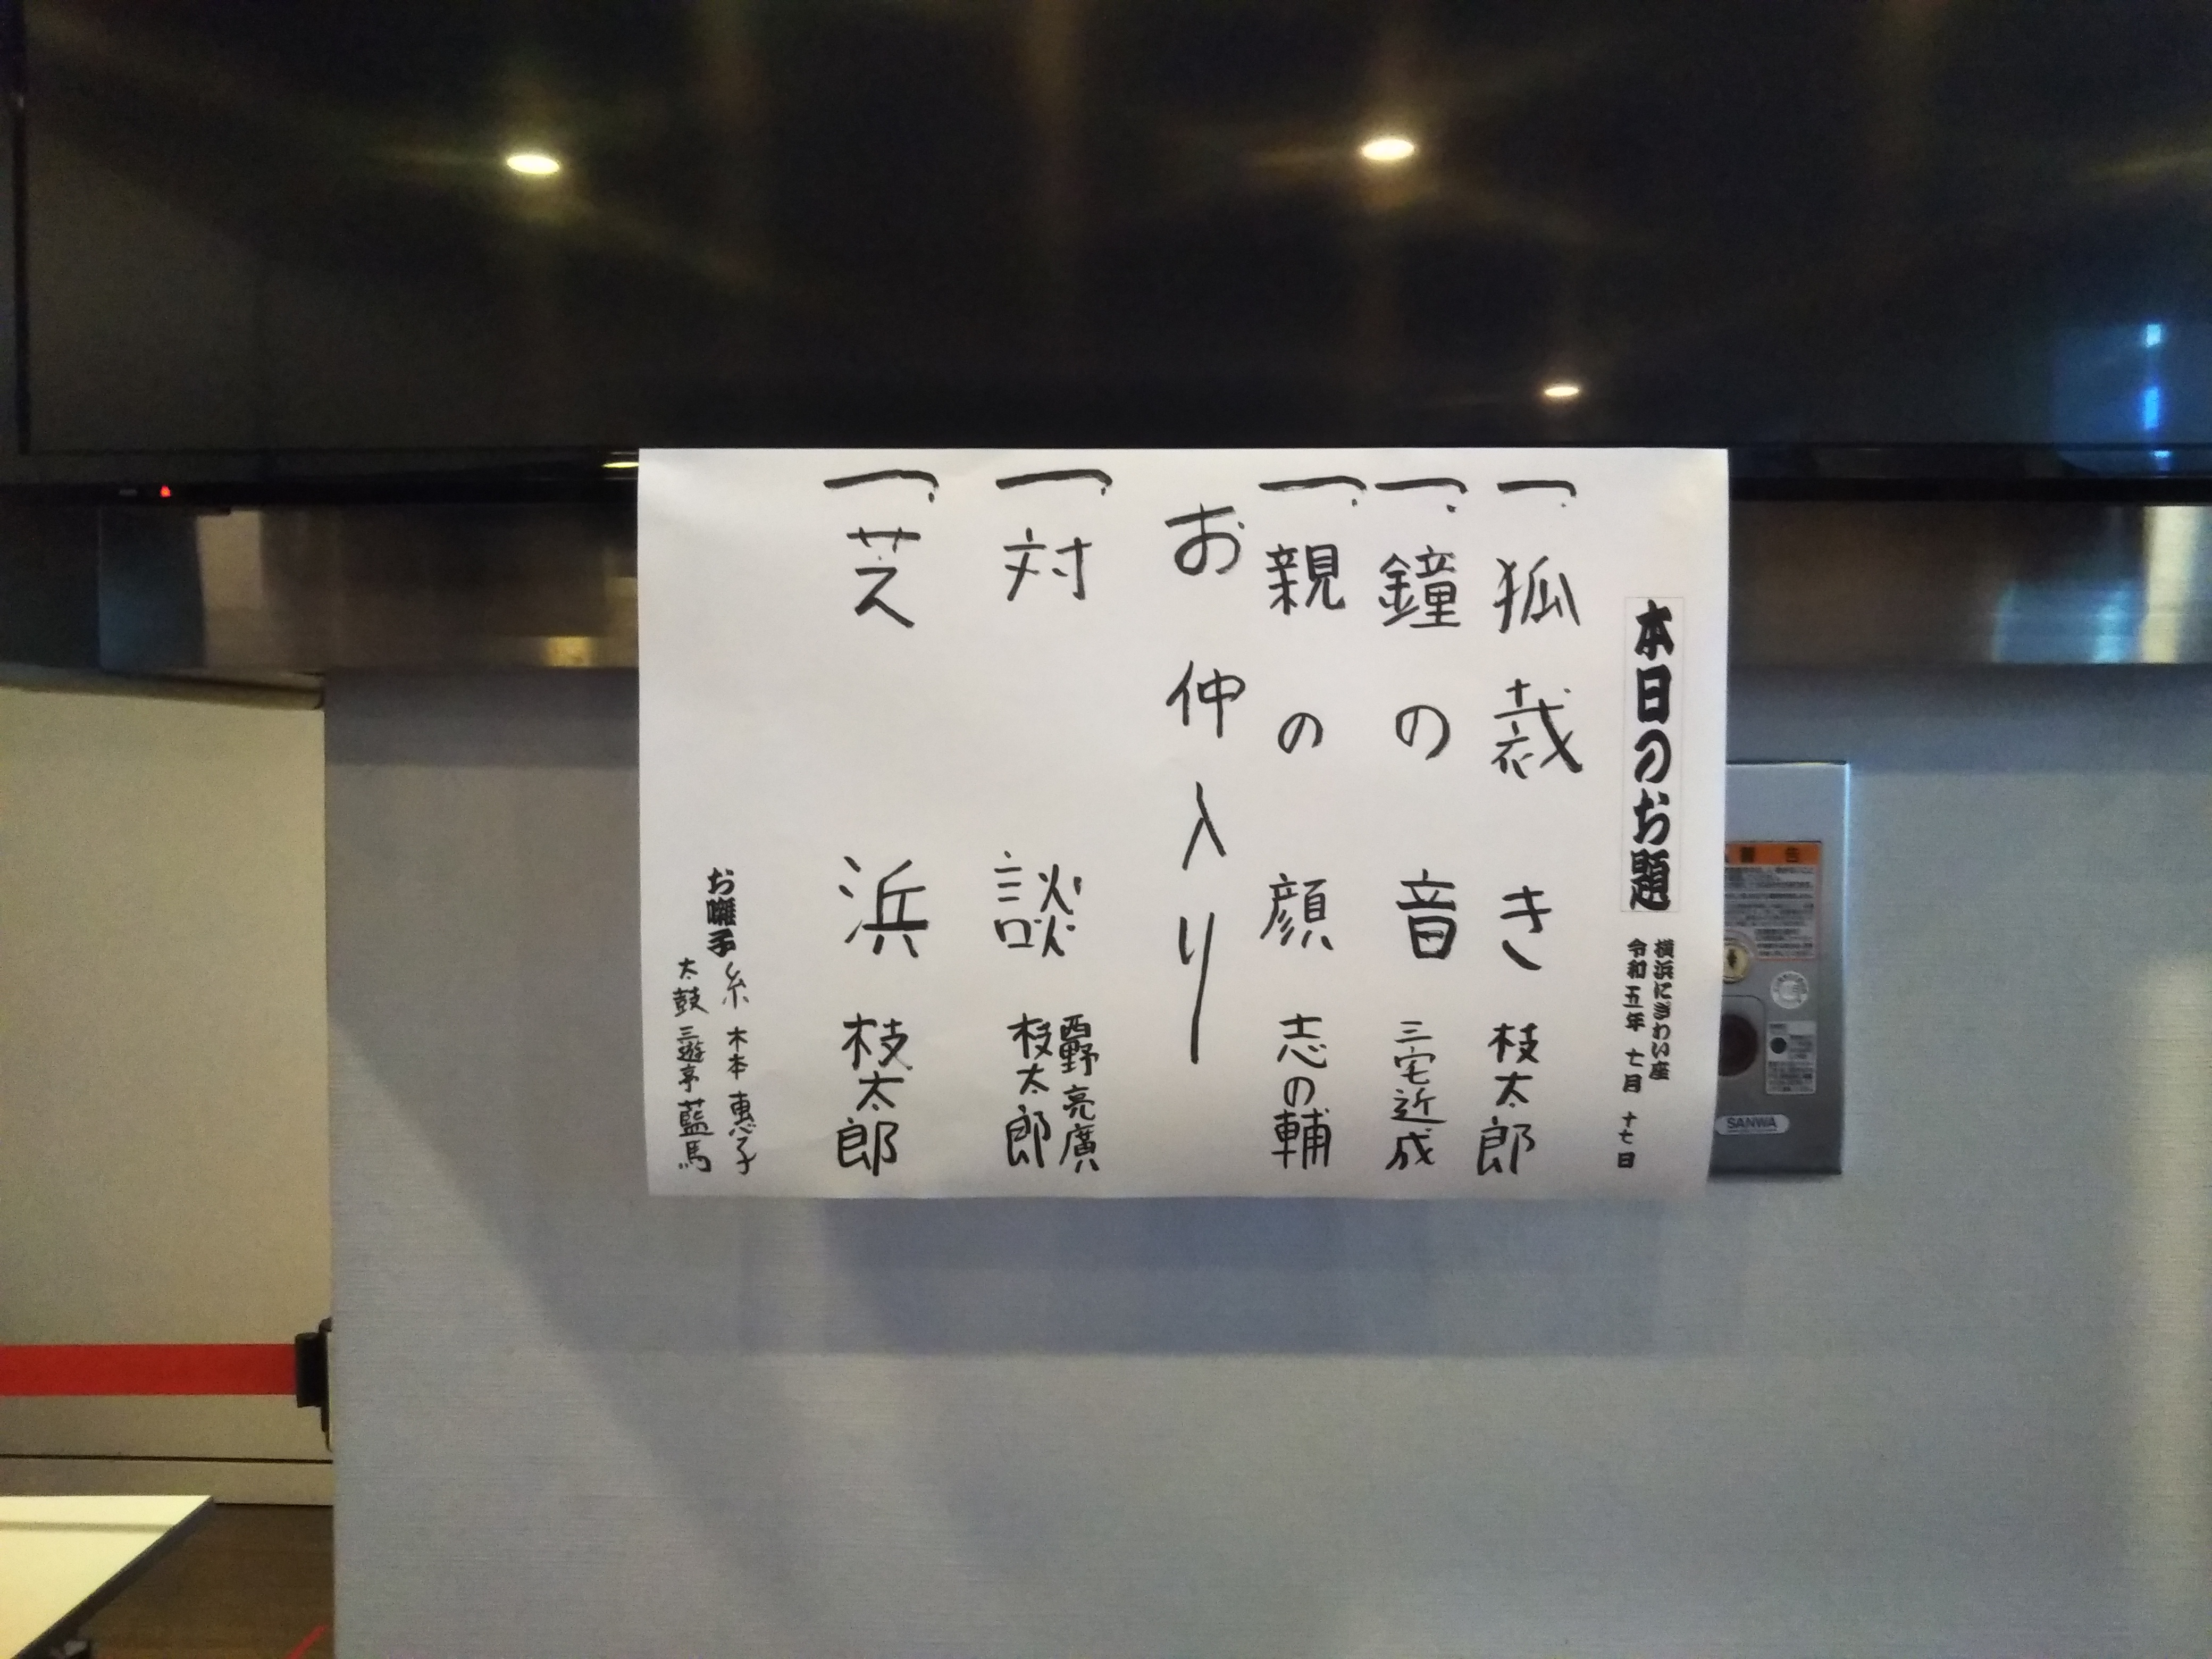 本日のお題
横浜にぎわい座
令和五年 七月 十七日
一、狐裁き 枝太郎
一、鐘の音 三宅近成
一、親の顔 志の輔
お仲入り
一、対談 西野亮廣 枝太郎
一、芝浜 枝太郎
お囃子 糸 木本恵子
太鼓 三遊亭藍馬
警告
SANWA